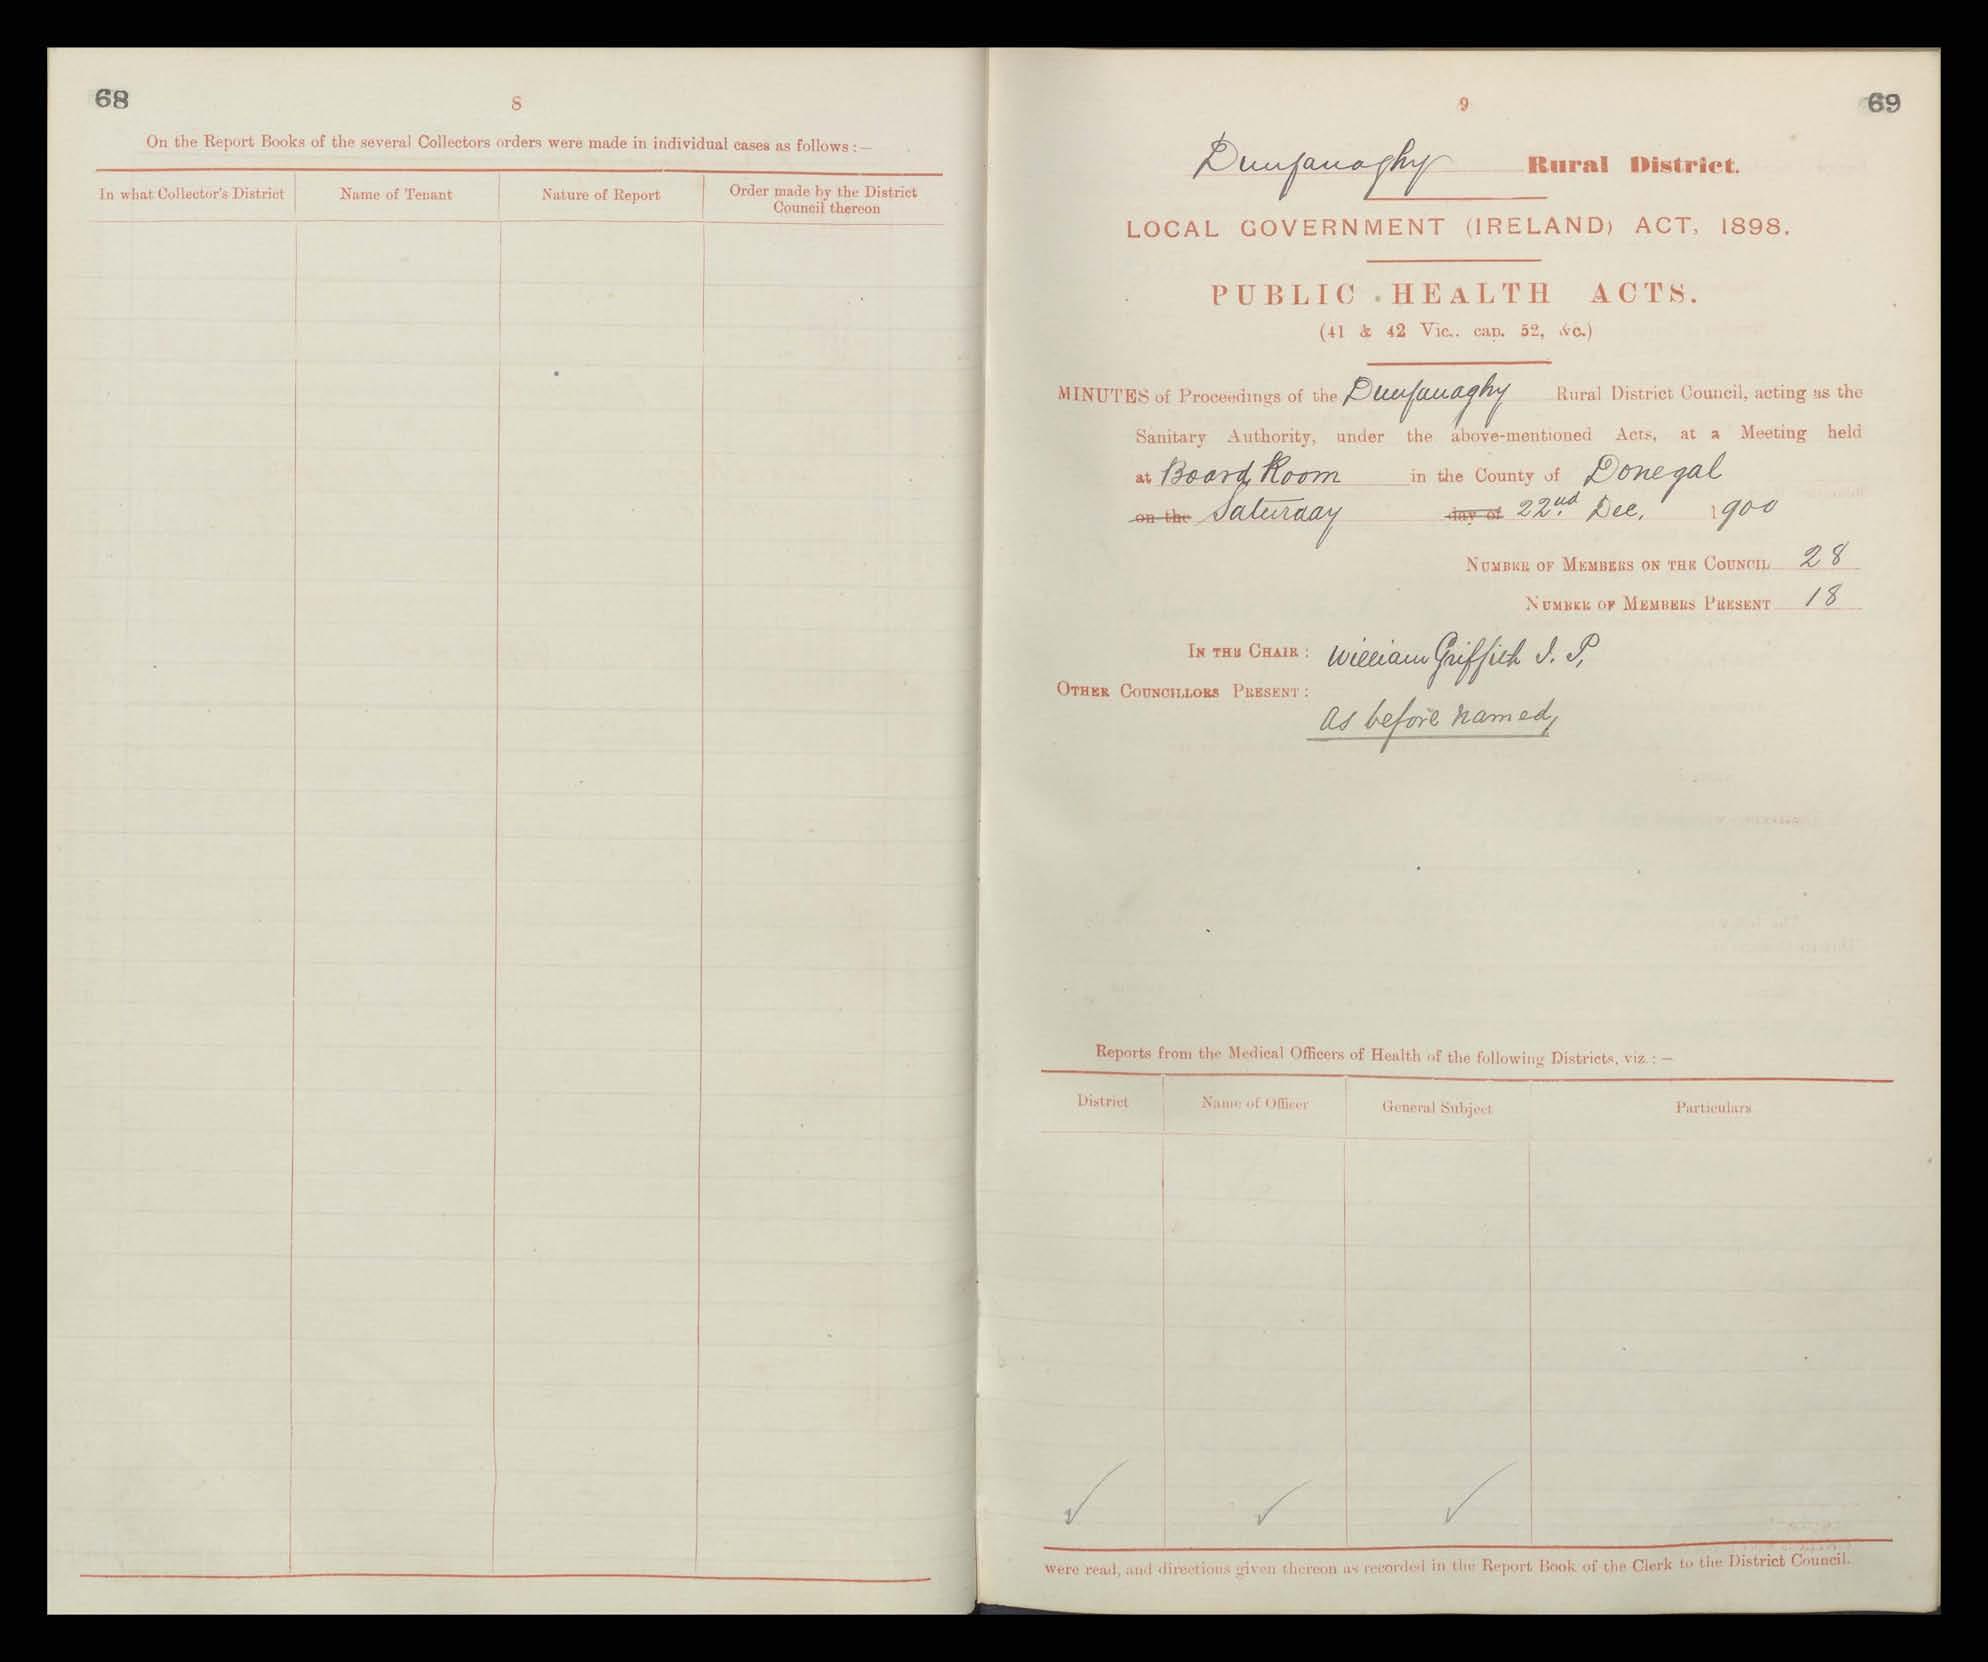 68
8
On the Report Books of the several Collectors orders were made in individual cases as follows :—
In what Collector's District
Name of Tenant
Nature of Report
Order made by the District
Council thereon
9
69
Dunfanaghy Rural District.
LOCAL GOVERNMENT (IRELAND) ACT, 1898.
PUBLIC HEALTH ACTS.
(41 & 42 Vic., cap. 52, &c.)
MINUTES of Proceedings of the Dunfanaghy Rural District Council, acting as the
Sanitary Authority, under the above-mentioned Acts, at a Meeting held
at Board Room in the County of Donegal
on the Saturday day of 22nd Dec. 1900
NUMBER OF MEMBERS ON THE COUNCIL 28
NUMBER OF MEMBERS PRESENT 18
IN THE CHAIR : William Griffith J. P.
OTHER COUNCILLORS PRESENT :
as before named,
Reports from the Medical Officers of Health of the following Districts, viz. :—
District
Name of Officer
General Subject
Particulars
were read, and directions given thereon as recorded in the Report Book of the Clerk to the District Council.